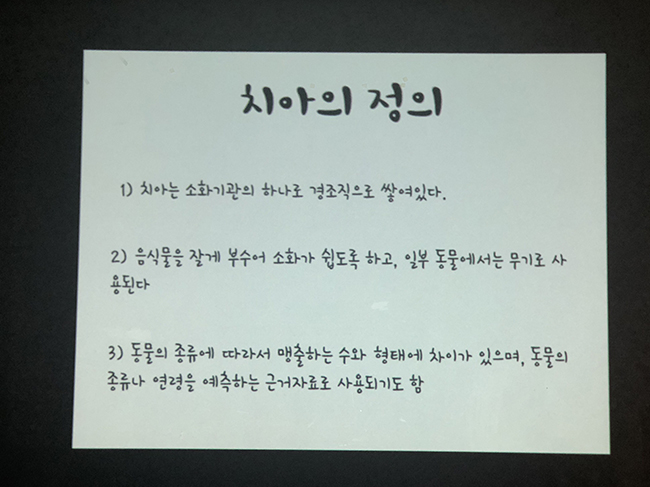 치아의 정의
1) 치아는 소화기관의 하나로 경조직으로 쌓여있다.
2) 음식물을 잘게 부수어 소화가 쉽도록 하고, 일부 동물에서는 무기로 사
용된다
3) 동물의 종류에 따라서 맹출하는 수와 형태에 차이가 있으며, 동물의
종류나 연령을 예측하는 근거자료로 사용되기도 함